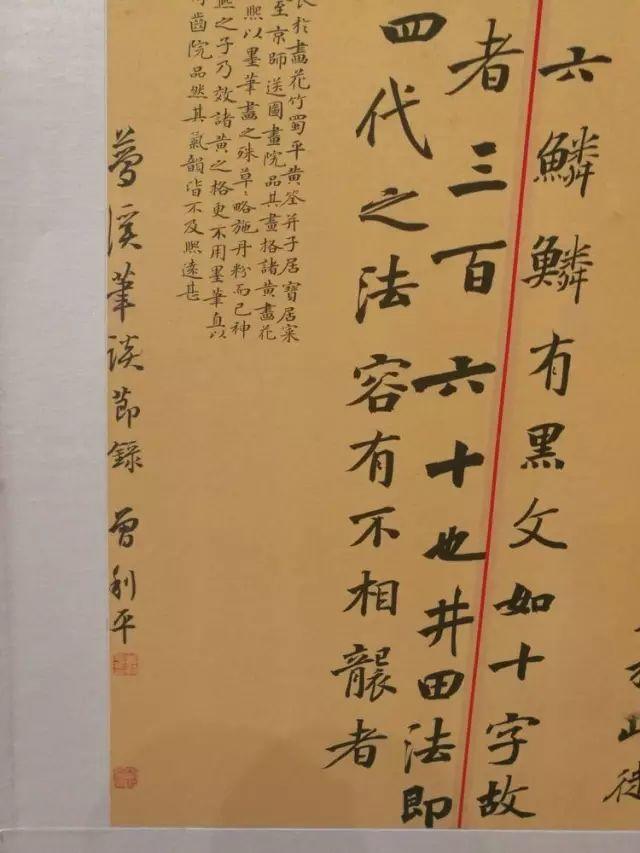 六鱗鱗有黑文如十字故
者三百六十也井田法即
四代之法容有不相襲者
於畫花竹蜀平黃筌并子居寶居寀
至京師送圖畫院品其畫格諸黃畫花
熙以墨筆畫之殊草〻略施丹粉而已神
熙之子乃效諸黃之格更不用墨筆直以
齒院品然其氣韻皆不及熙遠甚
夢溪筆談節錄 曾利平